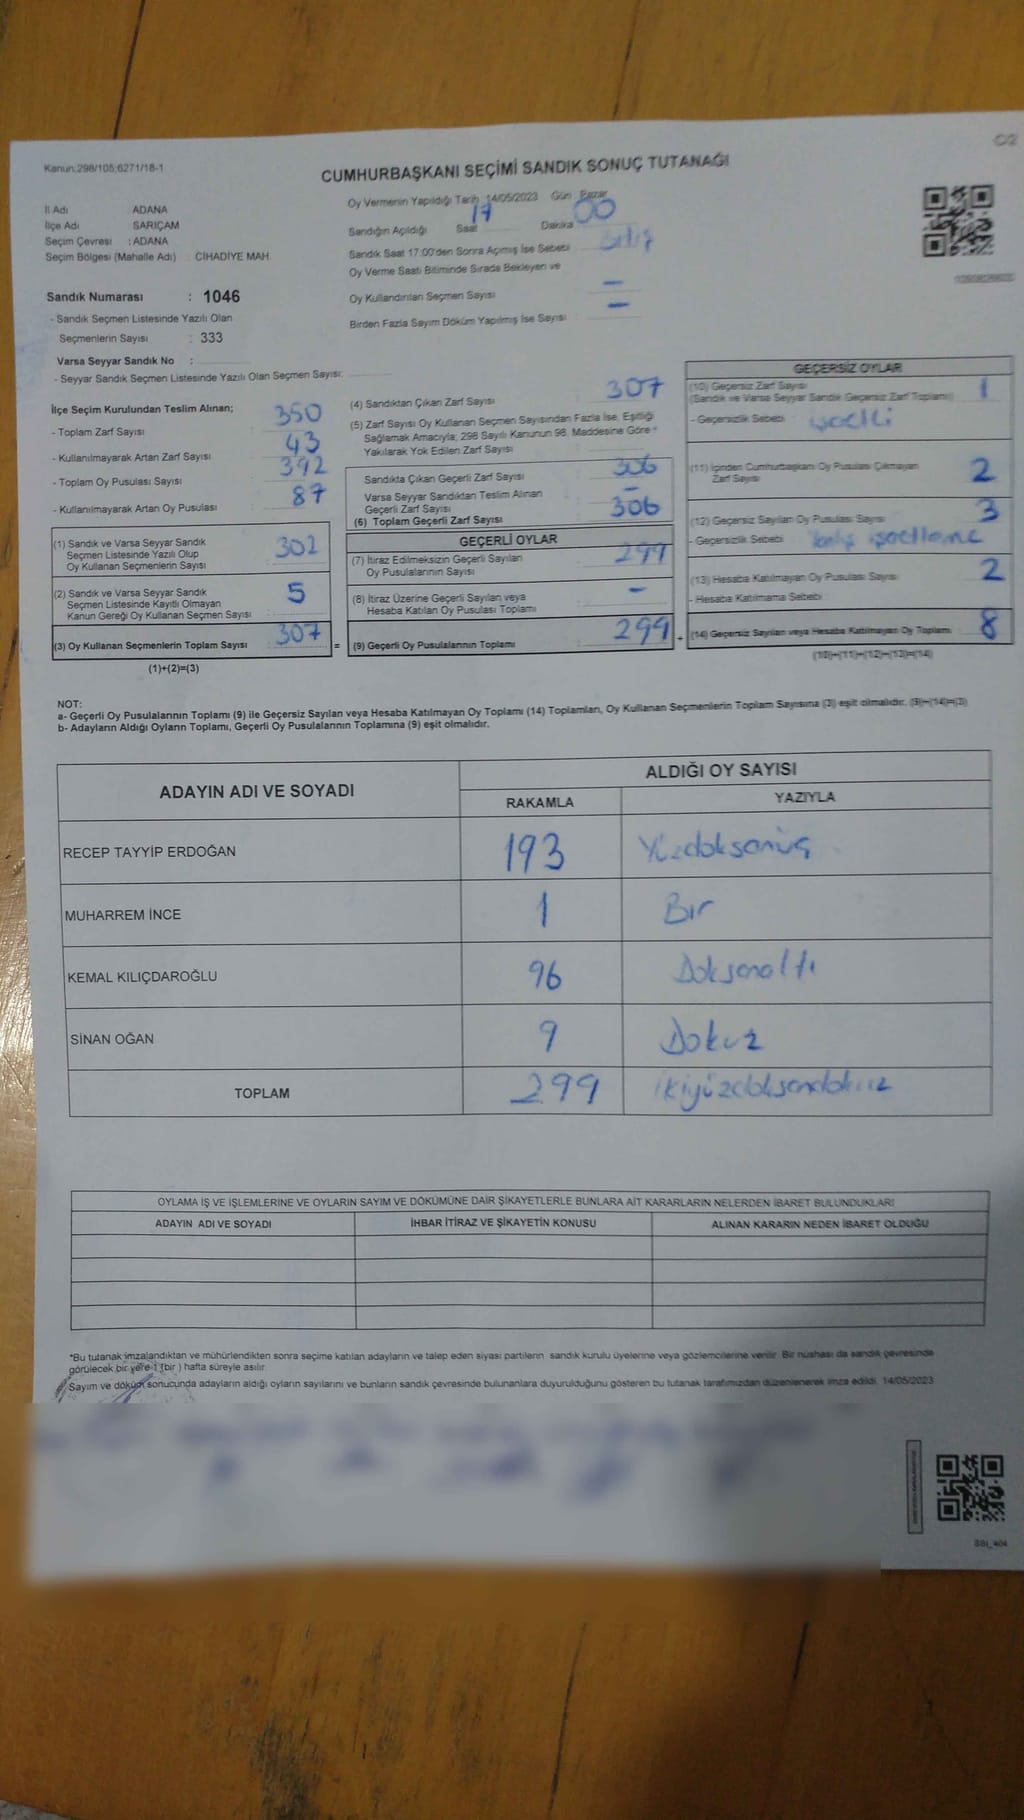 C/2
Kanun:298/105;6271/18-1
CUMHURBAŞKANI SEÇİMİ SANDIK SONUÇ TUTANAĞI
İl Adı : ADANA
İlçe Adı : SARIÇAM
Seçim Çevresi : ADANA
Seçim Bölgesi (Mahalle Adı) : CİHADİYE MAH.
Sandık Numarası : 1046
- Sandık Seçmen Listesinde Yazılı Olan
Seçmenlerin Sayısı : 333
Varsa Seyyar Sandık No :
- Seyyar Sandık Seçmen Listesinde Yazılı Olan Seçmen Sayısı:
Oy Vermenin Yapıldığı Tarih: 14/05/2023 Gün : Pazar
Sandığın Açıldığı Saat 17 Dakika 00
Sandık Saat 17:00'den Sonra Açılmış İse Sebebi
Oy Verme Saati Bitiminde Sırada Bekleyen ve
Oy Kullandırılan Seçmen Sayısı : –
Birden Fazla Sayım Döküm Yapılmış İse Sayısı : –
İlçe Seçim Kurulundan Teslim Alınan;
- Toplam Zarf Sayısı : 350
- Kullanılmayarak Artan Zarf Sayısı : 43
- Toplam Oy Pusulası Sayısı : 392
- Kullanılmayarak Artan Oy Pusulası : 87
(1) Sandık ve Varsa Seyyar Sandık
Seçmen Listesinde Yazılı Olup
Oy Kullanan Seçmenlerin Sayısı : 302
(2) Sandık ve Varsa Seyyar Sandık
Seçmen Listesinde Kayıtlı Olmayan
Kanun Gereği Oy Kullanan Seçmen Sayısı : 5
(3) Oy Kullanan Seçmenlerin Toplam Sayısı : 307
(1)+(2)=(3)
(4) Sandıktan Çıkan Zarf Sayısı : 307
(5) Zarf Sayısı Oy Kullanan Seçmen Sayısından Fazla İse, Eşitliği
Sağlamak Amacıyla; 298 Sayılı Kanunun 98. Maddesine Göre
Yakılarak Yok Edilen Zarf Sayısı :
Sandıkta Çıkan Geçerli Zarf Sayısı : 306
Varsa Seyyar Sandıktan Teslim Alınan
Geçerli Zarf Sayısı : –
(6) Toplam Geçerli Zarf Sayısı : 306
GEÇERLİ OYLAR
(7) İtiraz Edilmeksizin Geçerli Sayılan
Oy Pusulalarının Sayısı : 299
(8) İtiraz Üzerine Geçerli Sayılan veya
Hesaba Katılan Oy Pusulası Toplamı : –
= (9) Geçerli Oy Pusulalarının Toplamı : 299 +
GEÇERSİZ OYLAR
(10) Geçersiz Zarf Sayısı
(Sandık ve Varsa Seyyar Sandık Geçersiz Zarf Toplamı) : 1
- Geçersizlik Sebebi : işaetli
(11) İçinden Cumhurbaşkanı Oy Pusulası Çıkmayan
Zarf Sayısı : 2
(12) Geçersiz Sayılan Oy Pusulası Sayısı : 3
- Geçersizlik Sebebi
(13) Hesaba Katılmayan Oy Pusulası Sayısı : 2
- Hesaba Katılmama Sebebi :
(14) Geçersiz Sayılan veya Hesaba Katılmayan Oy Toplamı : 8
(10)+(11)+(12)+(13)=(14)
NOT:
a- Geçerli Oy Pusulalarının Toplamı (9) ile Geçersiz Sayılan veya Hesaba Katılmayan Oy Toplamı (14) Toplamları, Oy Kullanan Seçmenlerin Toplam Sayısına (3) eşit olmalıdır. (9)+(14)=(3)
b- Adayların Aldığı Oyların Toplamı, Geçerli Oy Pusulalarının Toplamına (9) eşit olmalıdır.
ADAYIN ADI VE SOYADI
ALDIĞI OY SAYISI
RAKAMLA YAZIYLA
RECEP TAYYİP ERDOĞAN 193 Yüzdoksanüç
MUHARREM İNCE 1 Bir
KEMAL KILIÇDAROĞLU 96 Doksanaltı
SİNAN OĞAN 9 Dokuz
TOPLAM 299 ikiyüzdoksandokuz
OYLAMA İŞ VE İŞLEMLERİNE VE OYLARIN SAYIM VE DÖKÜMÜNE DAİR ŞİKAYETLERLE BUNLARA AİT KARARLARIN NELERDEN İBARET BULUNDUKLARI
ADAYIN ADI VE SOYADI İHBAR İTİRAZ VE ŞİKAYETİN KONUSU ALINAN KARARIN NEDEN İBARET OLDUĞU
*Bu tutanak imzalandıktan ve mühürlendikten sonra seçime katılan adayların ve talep eden siyasi partilerin sandık kurulu üyelerine veya gözlemcilerine verilir. Bir nüshası da sandık çevresinde
görülecek bir yere 1 (bir) hafta süreyle asılır.
Sayım ve döküm sonucunda adayların aldığı oyların sayılarını ve bunların sandık çevresinde bulunanlara duyurulduğunu gösteren bu tutanak tarafımızdan düzenlenerek imza edildi. 14/05/2023